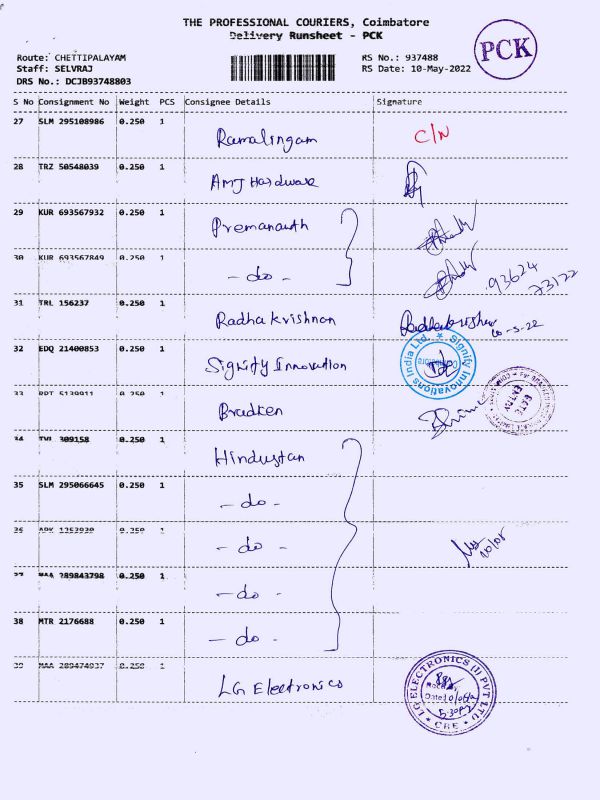 THE PROFESSIONAL COURIERS, Coimbatore
Delivery Runsheet - PCK
PCK
Route: CHETTIPALAYAM
Staff: SELVRAJ
DRS No.: DCJB93748803
RS No.: 937488
RS Date: 10-May-2022
S No Consignment No Weight PCS Consignee Details Signature
27 SLM 295108986 0.250 1 Ramalingam C/N
28 TRZ 50548039 0.250 1 AMJ Hardware
29 KUR 693567932 0.250 1 Premananth
30 KUR 693567849 0.250 1 - do - 93624
73122
31 TRL 156237 0.250 1 Radha krishnan Radhakrishnan
10-5-22
32 EDQ 21400853 0.250 1 Signify Innovation
Signify Innovations India Ltd. Coimbatore
33 0.250 1 Bradken
34 309158 0.250 1 Hindustan
35 SLM 295066645 0.250 1 - do -
36 0.250 1 - do -
10/05
37 MAA 289843798 0.250 1 - do -
38 MTR 2176688 0.250 1 - do -
39 MAA 289474937 0.250 1 LG Electronics
LG ELECTRONICS (I) PVT LTD
Date
5.30
CBE